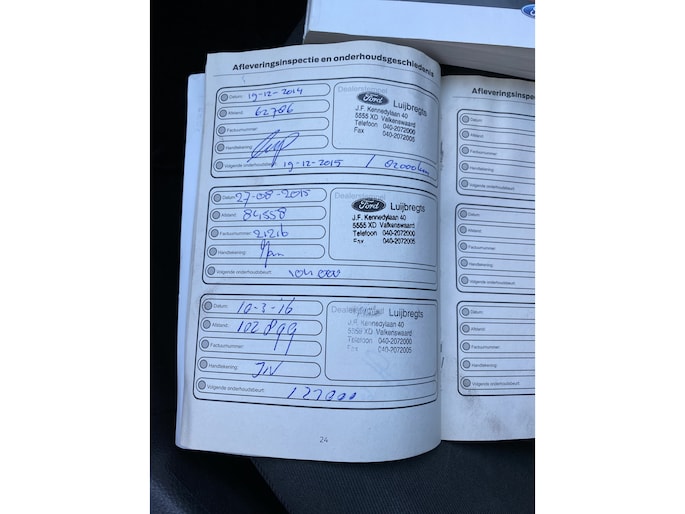 Afleveringsinspectie en onderhoudsgeschiedenis
Datum: 19-12-2014
Afstand: 62786
Factuurnummer:
Handtekening:
Volgende onderhoudsbeurt: 19-12-2015 /
Dealerstempel
Ford Luijbregts
J.F. Kennedylaan 40
5555 XD Valkenswaard
Telefoon 040-2072000
Fax 040-2072005
Datum: 27-08-2015
Afstand: 84558
Factuurnummer: 21216
Handtekening:
Volgende onderhoudsbeurt: 104000
Dealerstempel
Ford Luijbregts
J.F. Kennedylaan 40
5555 XD Valkenswaard
Telefoon 040-2072000
Fax 040-2072005
Datum: 10-3-16
Afstand: 102899
Factuurnummer:
Handtekening:
Volgende onderhoudsbeurt: 122000
Luijbregts
J.F. Kennedylaan 40
5555 XD Valkenswaard
Telefoon 040-2072000
Fax 040-2072005
24
Afleveringsinspec
Datum:
Afstand:
Factuurnummer:
Handtekening:
Volgende onderhoudsbeurt:
Datum:
Afstand:
Factuurnummer:
Handtekening:
Volgende onderhoudsbeurt:
Datum:
Afstand:
Factuurnummer:
Handtekening:
Volgende onderhoudsbeurt: